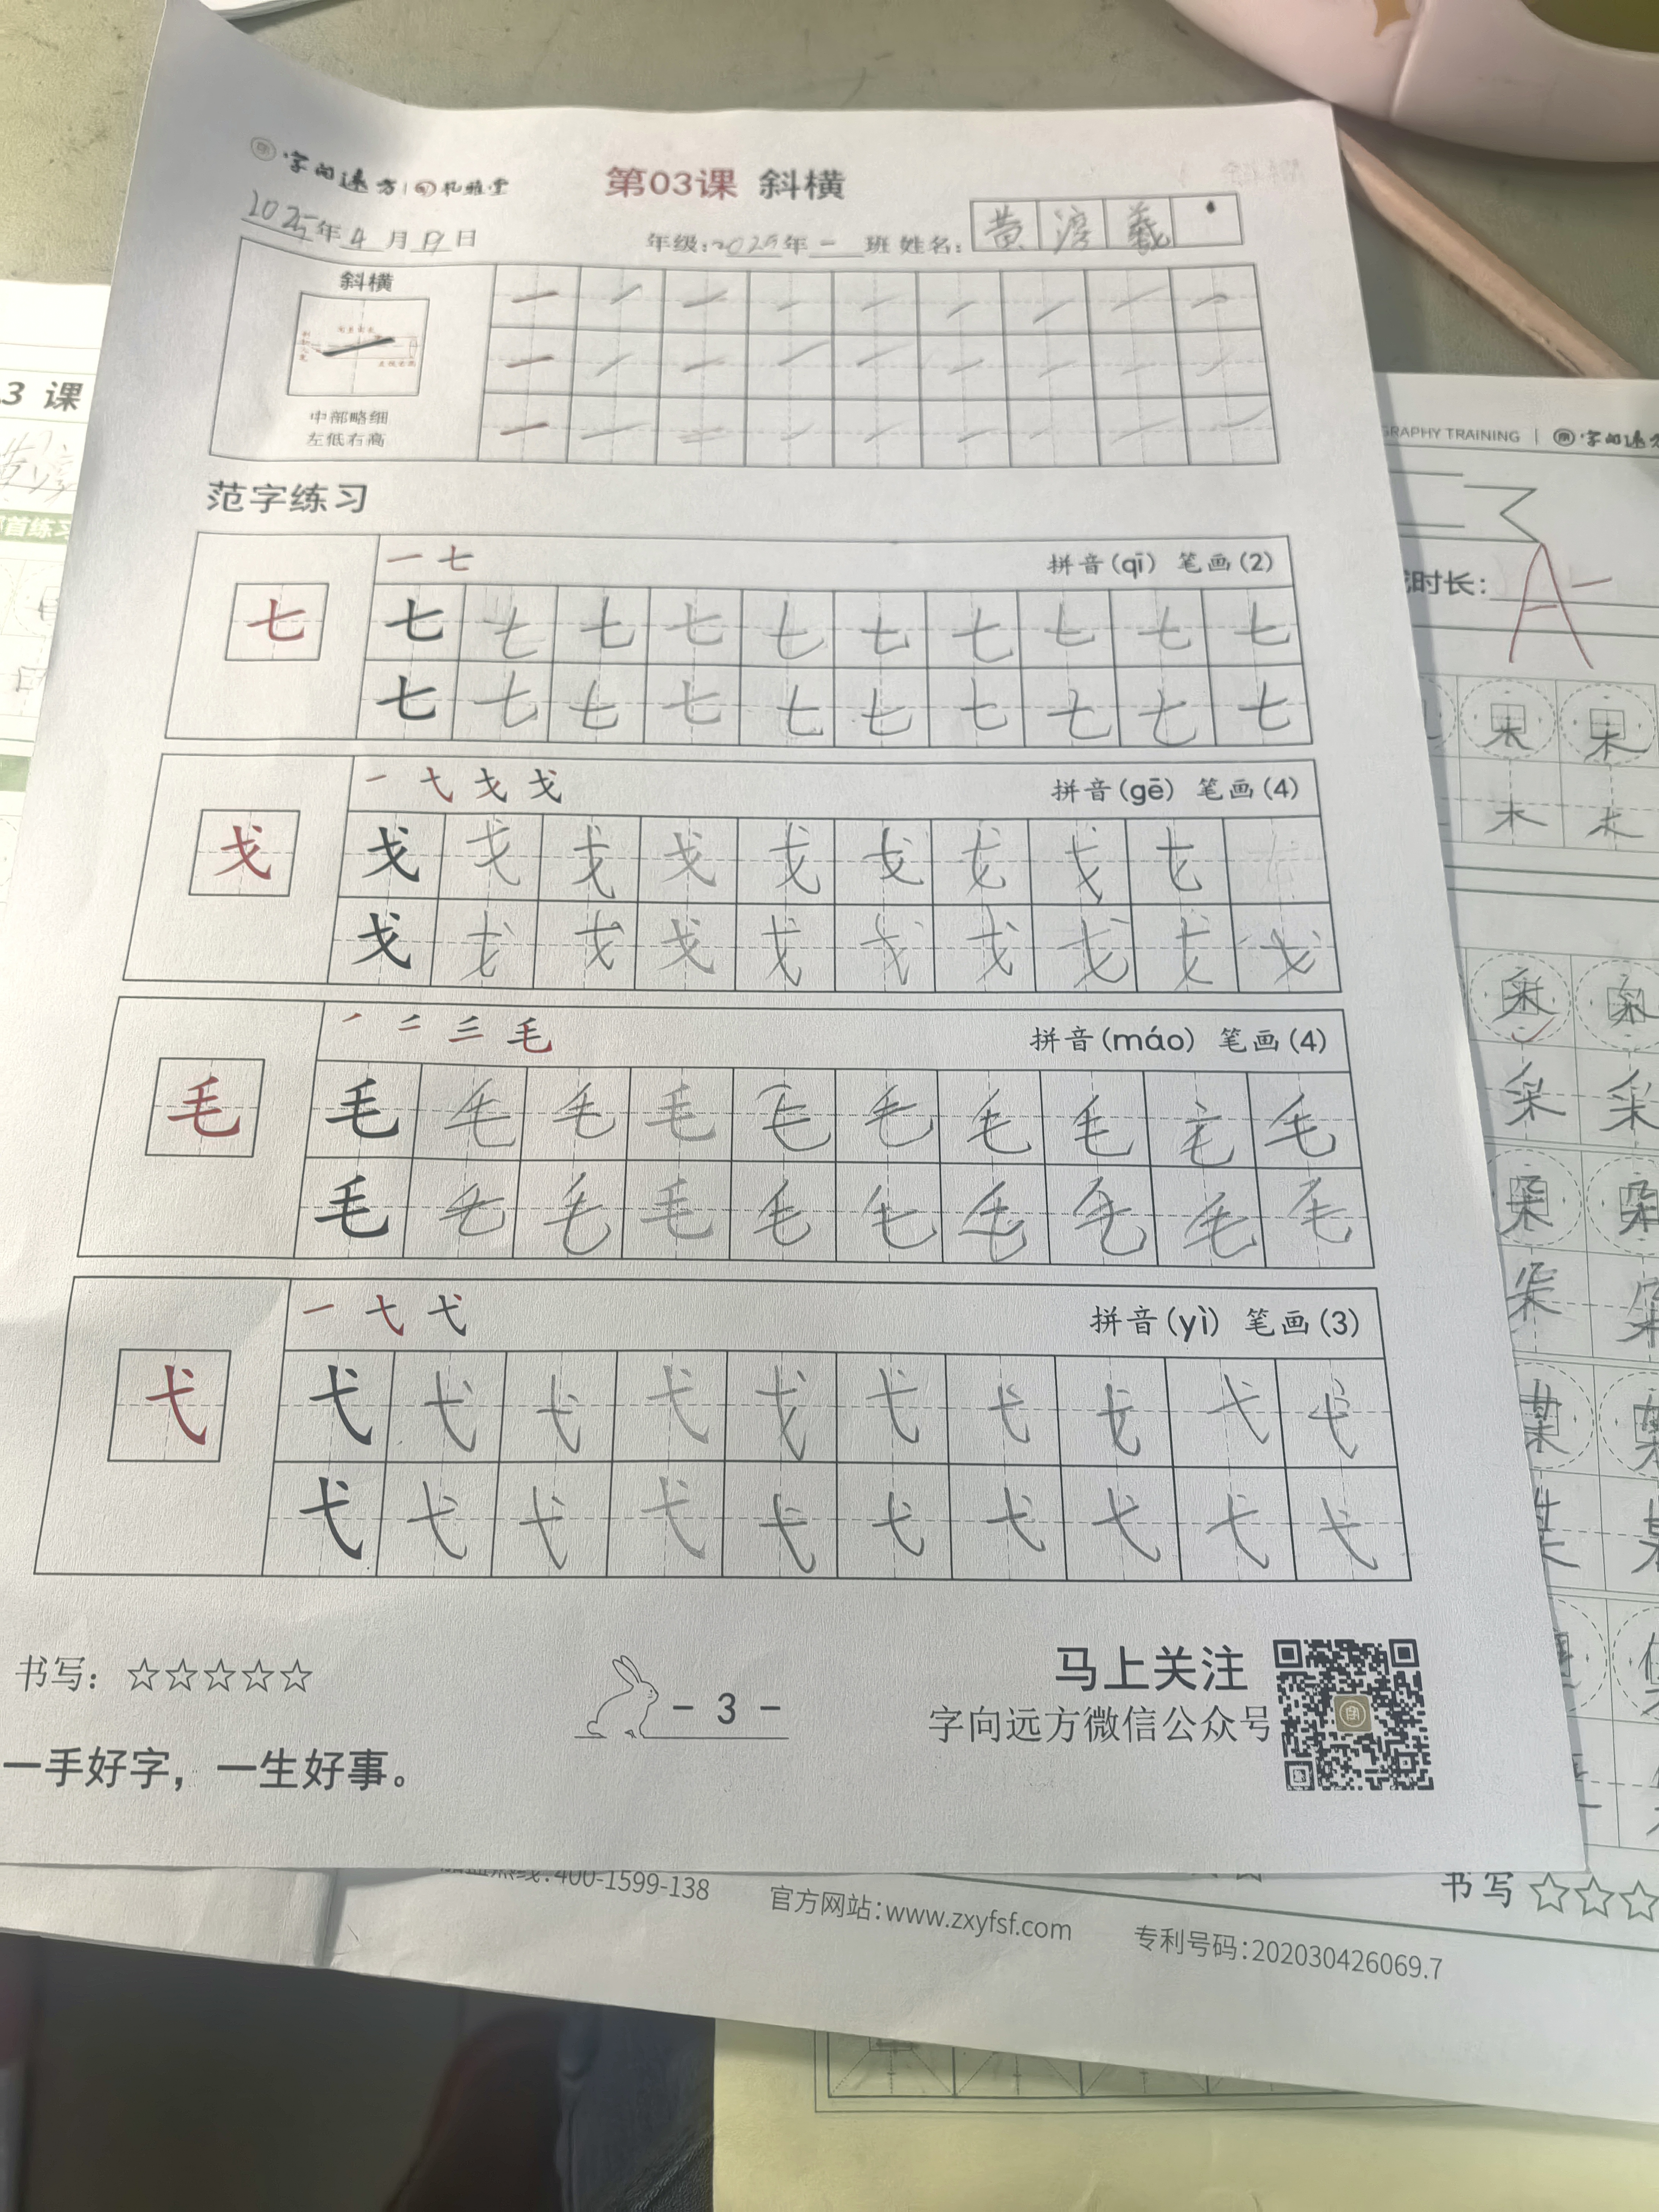 字向远方 | 礼雅堂
第03课 斜横
2025年4月19日
年级:2025年一班 姓名:黄淳羲
斜横
中部略细
左低右高
范字练习
一 七
拼音(qī) 笔画(2)
七 七 七 七 七 七 七 七 七 七 七
七 七 七 七 七 七 七 七 七 七
一 弋 戈 戈
拼音(gē) 笔画(4)
戈 戈 戈 戈 戈 戈 戈 戈 戈 戈
戈 戈 戈 戈 戈 戈 戈 戈 戈 戈
毛
拼音(máo) 笔画(4)
毛 毛 毛 毛 毛 毛 毛 毛 毛 毛 毛
毛 毛 毛 毛 毛 毛 毛 毛 毛 毛
一 弋
拼音(yì) 笔画(3)
弋 弋 弋 弋 弋 弋 弋 弋 弋 弋 弋
弋 弋 弋 弋 弋 弋 弋 弋 弋 弋
书写: ☆☆☆☆☆
- 3 -
马上关注
字向远方微信公众号
一手好字，一生好事。
3 课
首练习
GRAPHY TRAINING | 字向远方
时长:
A-
书写 ☆☆☆
热线:400-1599-138
官方网站:www.zxyfsf.com
专利号码:202030426069.7